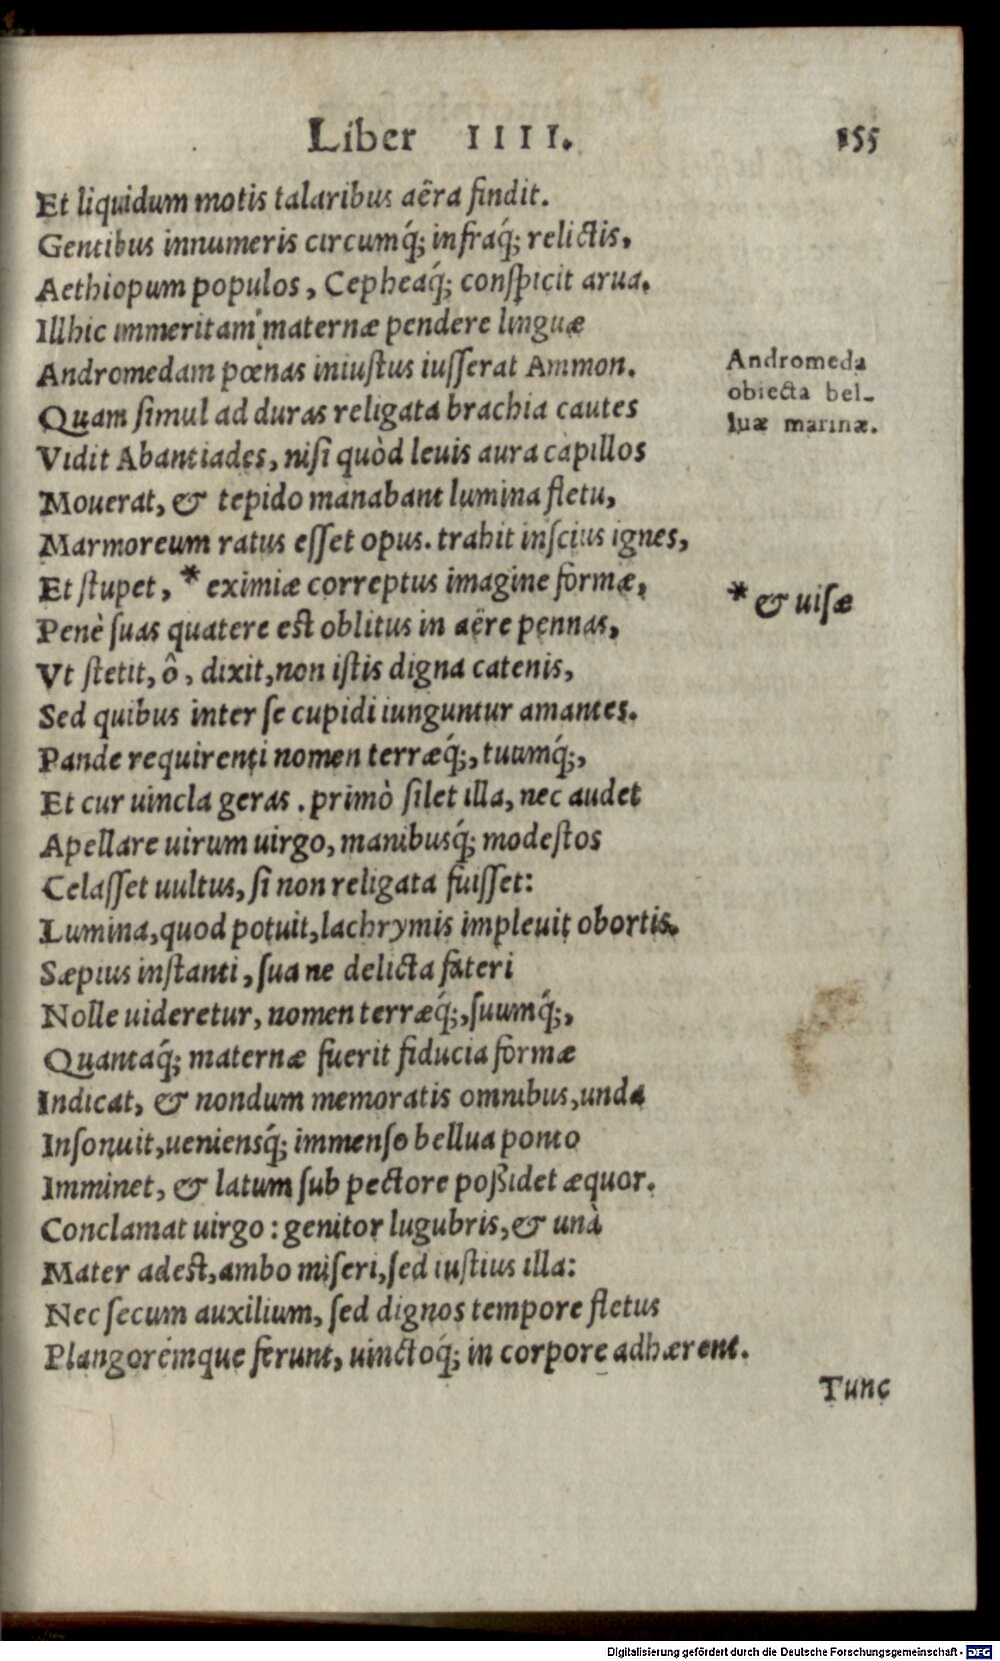 Liber IIII. 155
Et liquidum motis talaribus aëra findit.
Gentibus innumeris circumq́; infraq́; relictis,
Aethiopum populos, Cepheaq́; conspicit arua.
Illhic immeritam maternæ pendere linguæ
Andromedam pœnas iniustus iusserat Ammon.
Andromeda
obiecta bel-
luæ marinæ.
Quam simul ad duras religata brachia cautes
Vidit Abantiades, nisi quòd leuis aura capillos
Mouerat, & tepido manabant lumina fletu,
Marmoreum ratus esset opus. trahit inscius ignes,
Et stupet, * eximiæ correptus imagine formæ,
* & uisæ
Penè suas quatere est oblitus in aëre pennas,
Vt stetit, ô, dixit, non istis digna catenis,
Sed quibus inter se cupidi iunguntur amantes.
Pande requirenti nomen terræq́;, tuumq́;,
Et cur uincla geras. primò silet illa, nec audet
Apellare uirum uirgo, manibusq́; modestos
Celasset uultus, si non religata fuisset:
Lumina, quod potuit, lachrymis impleuit obortis.
Sæpius instanti, sua ne delicta fateri
Nolle uideretur, nomen terræq́;, suumq́;,
Quantaq́; maternæ fuerit fiducia formæ
Indicat, & nondum memoratis omnibus, unda
Insonuit, ueniensq́; immenso bellua ponto
Imminet, & latum sub pectore poßidet æquor.
Conclamat uirgo: genitor lugubris, & unà
Mater adest, ambo miseri, sed iustius illa:
Nec secum auxilium, sed dignos tempore fletus
Plangorémque ferunt, uinctoq́; in corpore adhærent.
Tunc
Digitalisierung gefördert durch die Deutsche Forschungsgemeinschaft - DFG